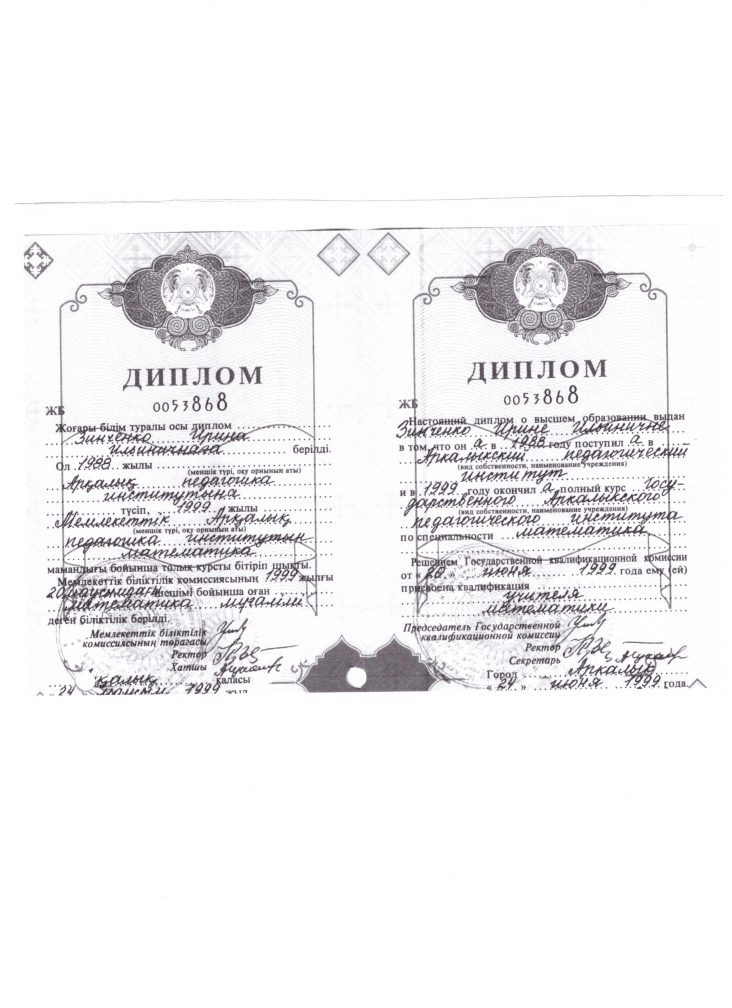 ДИПЛОМ
ЖБ
0053868
Жоғары білім туралы осы диплом
Зинченко Ирина
Ильиничнаға берілді.
Ол 1988 жылы
(меншік түрі, оқу орнының аты)
Арқалық педагогика
институтына
түсіп, 1999 жылы
Мемлекеттік Арқалық
(меншік түрі, оқу орнының аты)
педагогика институтын
математика
мамандығы бойынша толық курсты бітіріп шықты.
Мемлекеттік біліктілік комиссиясының 1999 жылғы
20 маусымдағы шешімі бойынша оған
математика мұғалімі
деген біліктілік берілді.
Мемлекеттік біліктілік
комиссиясының төрағасы
Ректор
Хатшы
қалық қаласы
24 1999 жыл
ДИПЛОМ
ЖБ
0053868
Настоящий диплом о высшем образовании выдан
Зинченко Ирине Ильиничне
в том, что он а в 1988 году поступил а в
Аркалыкский педагогический
(вид собственности, наименование учреждения)
институт
и в 1999 году окончил а полный курс Госу-
дарственного Аркалыкского
(вид собственности, наименование учреждения)
педагогического института
по специальности математика
Решением Государственной квалификационной комиссии
от « 20 » июня 1999 года ему (ей)
присвоена квалификация
учителя
математики
Председатель Государственной
квалификационной комиссии
Ректор
Секретарь
Город Аркалык
« 24 » июня 1999 года.